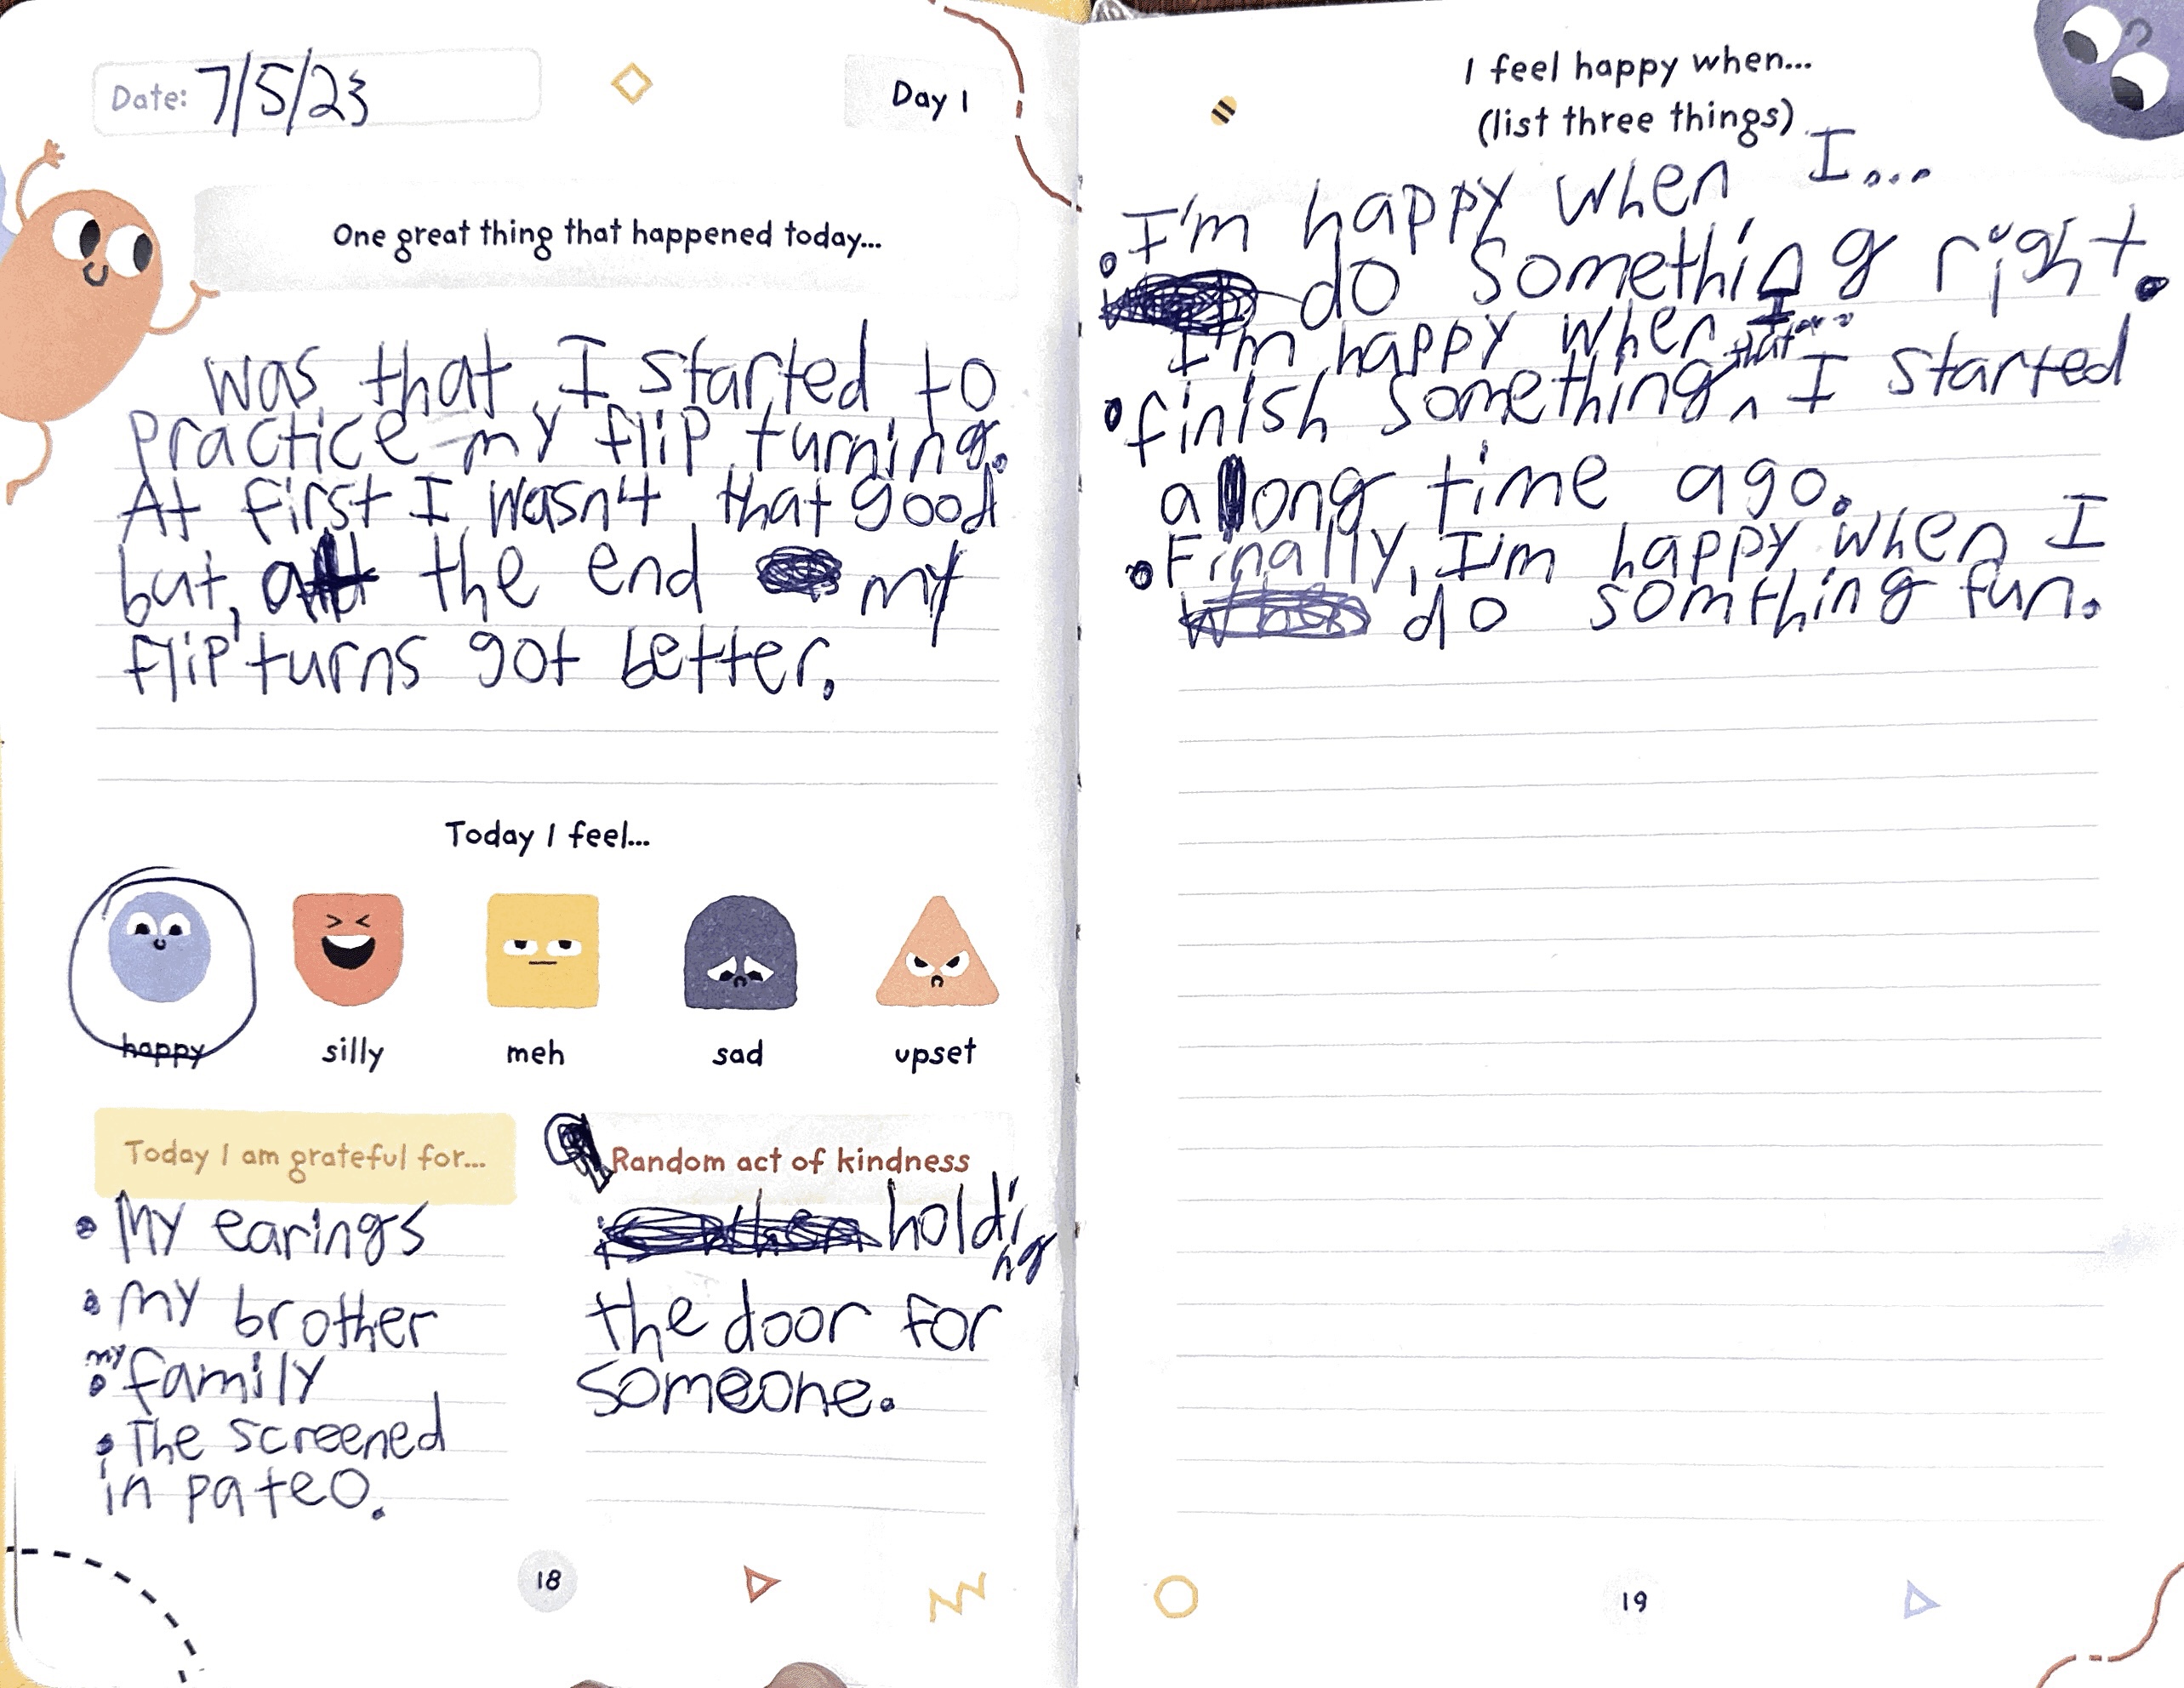 Date: 7/5/23
Day 1
One great thing that happened today...
was that I started to
practice my flip turning.
At first I wasn't that good
but, at the end my
flip turns got better.
Today I feel...
happy silly meh sad upset
Today I am grateful for...
• My earings
• my brother
• my family
• The screened
in pateo.
Random act of kindness
holding
the door for
someone.
18
I feel happy when...
(list three things)
• I'm happy when I...
do something right.
I'm happy when I
• finish something that I started
a long time ago.
• Finally, I'm happy when I
do somthing fun.
19